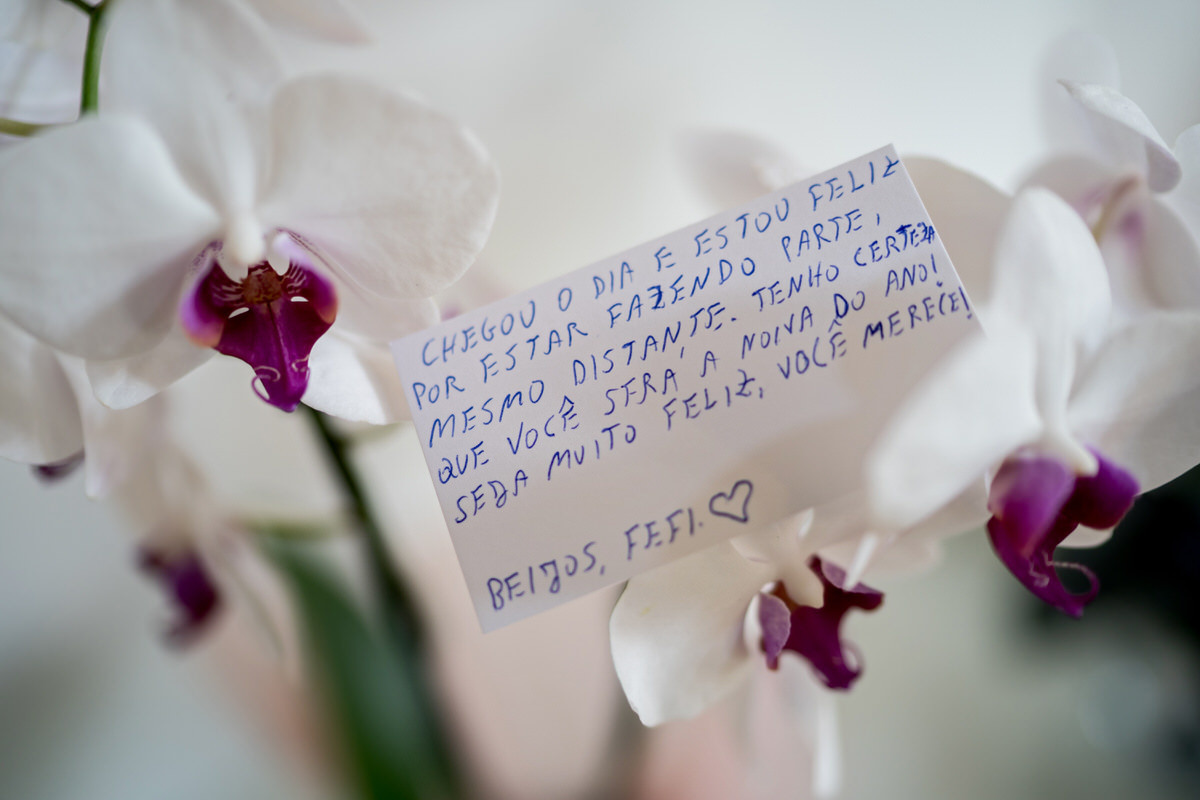 CHEGOU O DIA E ESTOU FELIZ
POR ESTAR FAZENDO PARTE,
MESMO DISTANTE. TENHO CERTEZA
QUE VOCÊ SERÁ A NOIVA DO ANO!
SEJA MUITO FELIZ, VOCÊ MERECE!
BEIJOS, FEFI. ♡